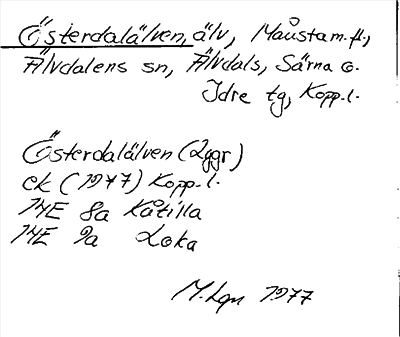 Österdalälven, älv, Månstam.fl.,
Älvdalens sn, Älvdals, Särna o.
Idre tg, Kopp.l.
Österdalälven (2ggr)
ek (1977) Kopp.l.
14E 8a Kåtilla
14E 9a Loka
M.Lgn 1977